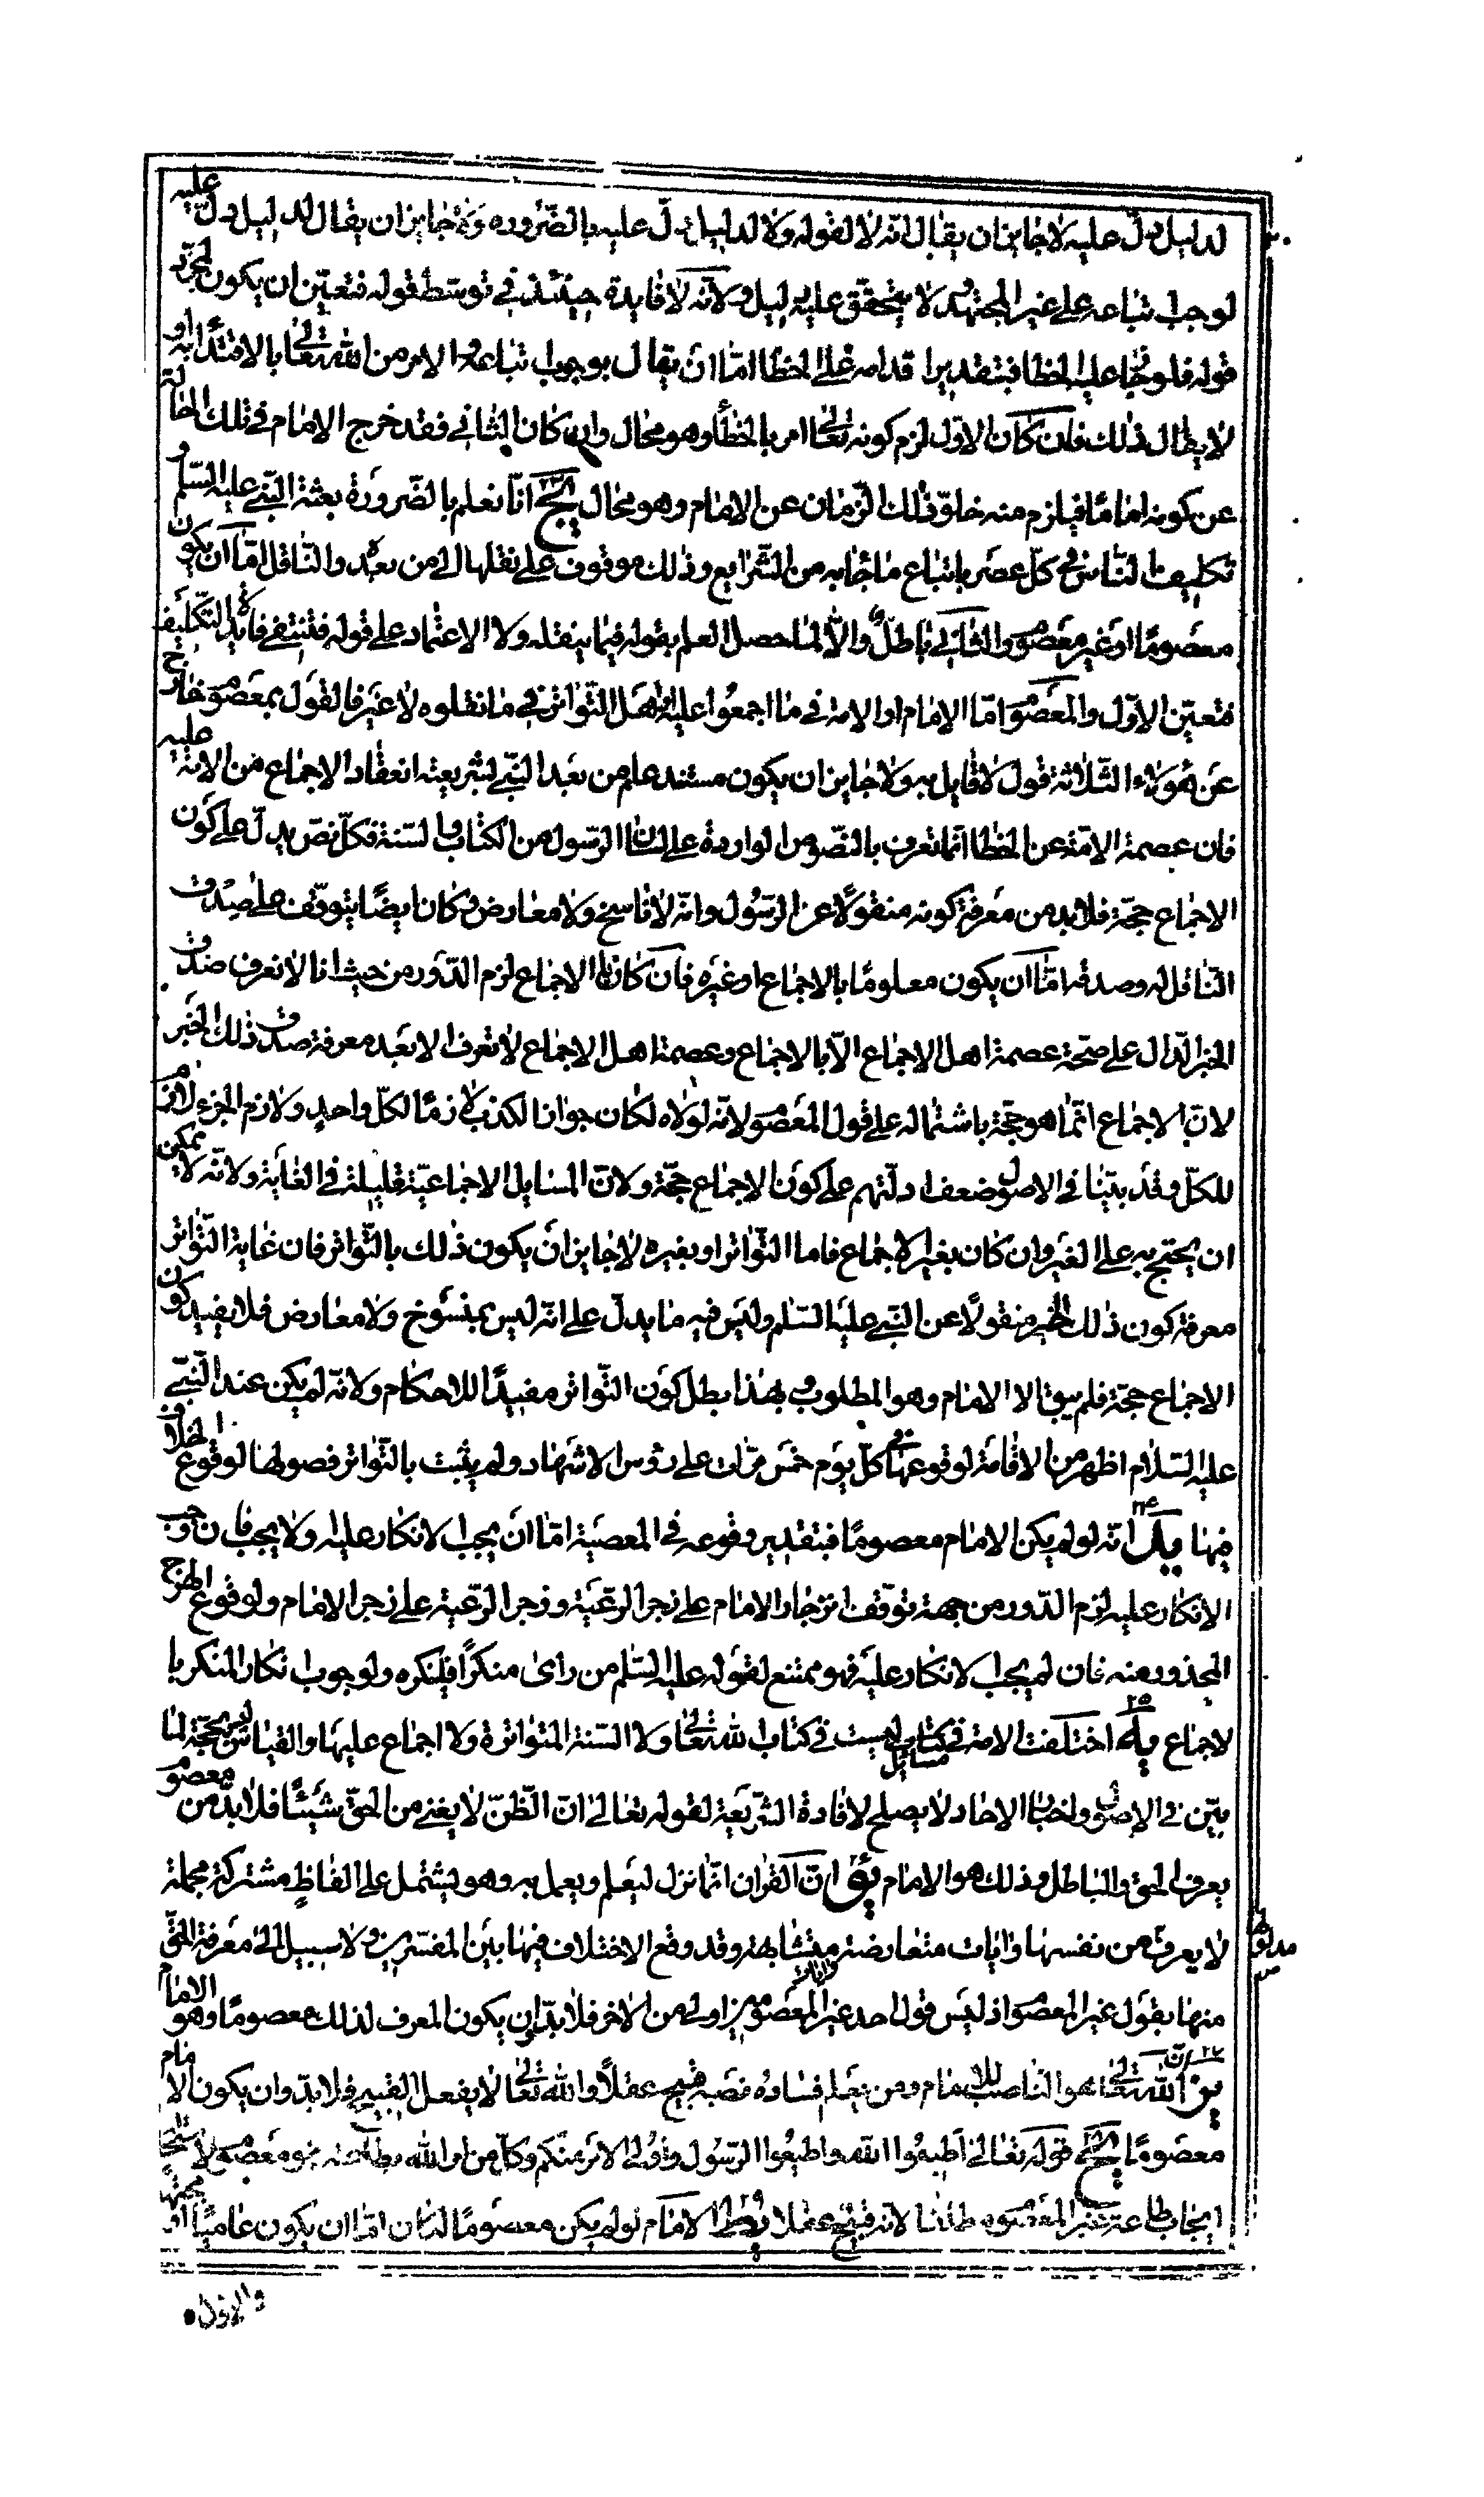 لدليل دلّ عليه لا جايز ان يقال انّه لا لقوله ولا لدليل دلّ عليه بالضّروره ولا جايز ان يقال لدليل دلّ عليه
لوجب اتباعه على غير المجتهد ولا يتحقق عليه دليل ولانّه لا فايدة حينئذ في توسّط قوله فتعيّن ان يكون لمجرّد
قوله فلو جاز عليه الخطا فبتقدير اقدامه على الخطا امّا ان يقال بوجوب اتباعه والامر من الله تعالى بالاقتداء به او
لا يقال ذلك فان كان الاول لزم كونه تعالى امر بالخطأ وهو محال وان كان الثاني فقد خرج الامام في تلك الحالة
عن كونه اماما فيلزم منه خلوّ ذلك الزمان عن الامام وهو محال كج انّا نعلم بالضّرورة بعثة النّبي عليه السّلم و
تكليف النّاس في كلّ عصر باتباع ما جاء به من الشّرايع وذلك موقوف على نقلها الى من بعده والنّاقل امّا ان يكون
معصومًا او غير معصوم والثاني باطلٌ والّا لما حصل العلم بقوله فيما ينقله ولا الاعتماد على قوله فتنتفي فايدة التّكليف
فتعيّن الاوّل والمعصوم امّا الامام او الامة في ما اجمعوا عليه او اهل التّواتر في ما نقلوه لا غير فالقول بمعصوم خارج
عن هؤلاء الثّلاثة قول لا قايل به ولا جايز ان يكون مستند علم من بعد النّبي لشريعته انعقاد الاجماع من الامة عليه
فان عصمة الامّة عن الخطا انّما تعرف بالنّصوص الواردة على لسان الرّسول من الكتاب والسّنة فكلّ نصّ يدلّ على كون
الاجماع حجّة فلا بد من معرفة كونه منقولًا عن الرّسول وانّه لا ناسخ ولا معارض وكان ايضًا يتوقّف على صدق
النّاقل له وصدقه امّا ان يكون معلومًا بالاجماع او غيره فان كان الاجماع لزم الدّور من حيث انا لا نعرف صدق
الخبر الّدال على صحّة عصمة اهل الاجماع الّا بالاجماع وعصمة اهل الاجماع لا تعرف الا بعد معرفة صدق ذلك الخبر
لانّ الاجماع انّما هو حجّة باشتماله على قول المعصوم لانّه لولاه لكان جواز الكذب لازمًا لكلّ واحدٍ ولازم الجزء لازم
للكلّ وقد بيّنا في الاصول ضعف ادلّتهم على كون الاجماع حجّة ولانّ المسايل الاجماعيّة قليلة في الغاية ولانّه لا يمكن
ان يحتج به على الغير وان كان بغير الاجماع فاما التّواتر او بغيره لا جايز ان يكون ذلك بالتّواتر فان غاية التّواتر
معرفة كون ذلك الخبر منقولًا عن النّبي عليه السّلم وليس فيه ما يدلّ على انّه ليس بمنسوخ ولا معارض فلا يفيد كون
الاجماع حجّة فلم يبق الا الامام وهو المطلوب وبهذا بطل كون التّواتر مفيدًا للاحكام ولانّه لم يكن عند النّبي
عليه السّلام اظهر من الاقامة لوقوعها في كلّ يوم خمس مرّات على رؤس الاشهاد ولم يثبت بالتّواتر فصولها لوقوع الخلاف
فيها كد انّه لو لم يكن الامام معصومًا فبتقدير وقوعه في المعصية امّا ان يجب الانكار عليه ولا يجب فان وجب
الانكار عليه لزم الدّور من جهة توقّف انزجار الامام على زجر الرّعيّة وزجر الرّعية على زجر الامام ولوقوع الهرج
المحذور منه فان لم يجب الانكار عليه فهو ممتنع لقوله عليه السّلم من راى منكرًا فلينكره ولوجوب انكار المنكر با
لاجماع كه اختلفت الامة في مسايل ليست في كتاب الله تعالى ولا السّنة المتواترة ولا اجماع عليها والقياس ليس بحجّة لما
بيّن في الاصول واخبار الاحاد لا يصلح لافادة الشّريعة لقوله تعالى انّ الظّنّ لا يغني من الحقّ شيئًا فلا بدّ من معصوم
يعرف الحق والباطل وذلك هو الامام كو انّ القران انّما نزل ليعلم ويعمل به وهو يشتمل على الفاظٍ مشتركة مجملة
لا يعرف من نفسها وايات متعارضة متشابهة وقد وقع الاختلاف فيها بين المفسّرين ولا سبيل الى معرفة الحقّ
منها بقول غير المعصوم اذ ليس قول احد غير المعصومين اولى من الاخر فلا بدّ ان يكون المعرف لذلك معصومًا وهو الامام
كز انّ الله تعالى هو النّاصب للامام ومن يعلم فساده نصبه قبيح عقلًا والله تعالى لا يفعل القبيح فلا بدّ وان يكون الامام
معصومًا كح قوله تعالى اطيعوا الله واطيعوا الرّسول واولى الامر منكم وكلّ من امر الله بطاعته فهو معصوم لاستحالة
ايجاب طاعة غير المعصوم مطلقا لانّه قبيح عقلا كط الامام لو لم يكن معصومًا لكان امّا ان يكون عاميًا او مجتهدا
والاول